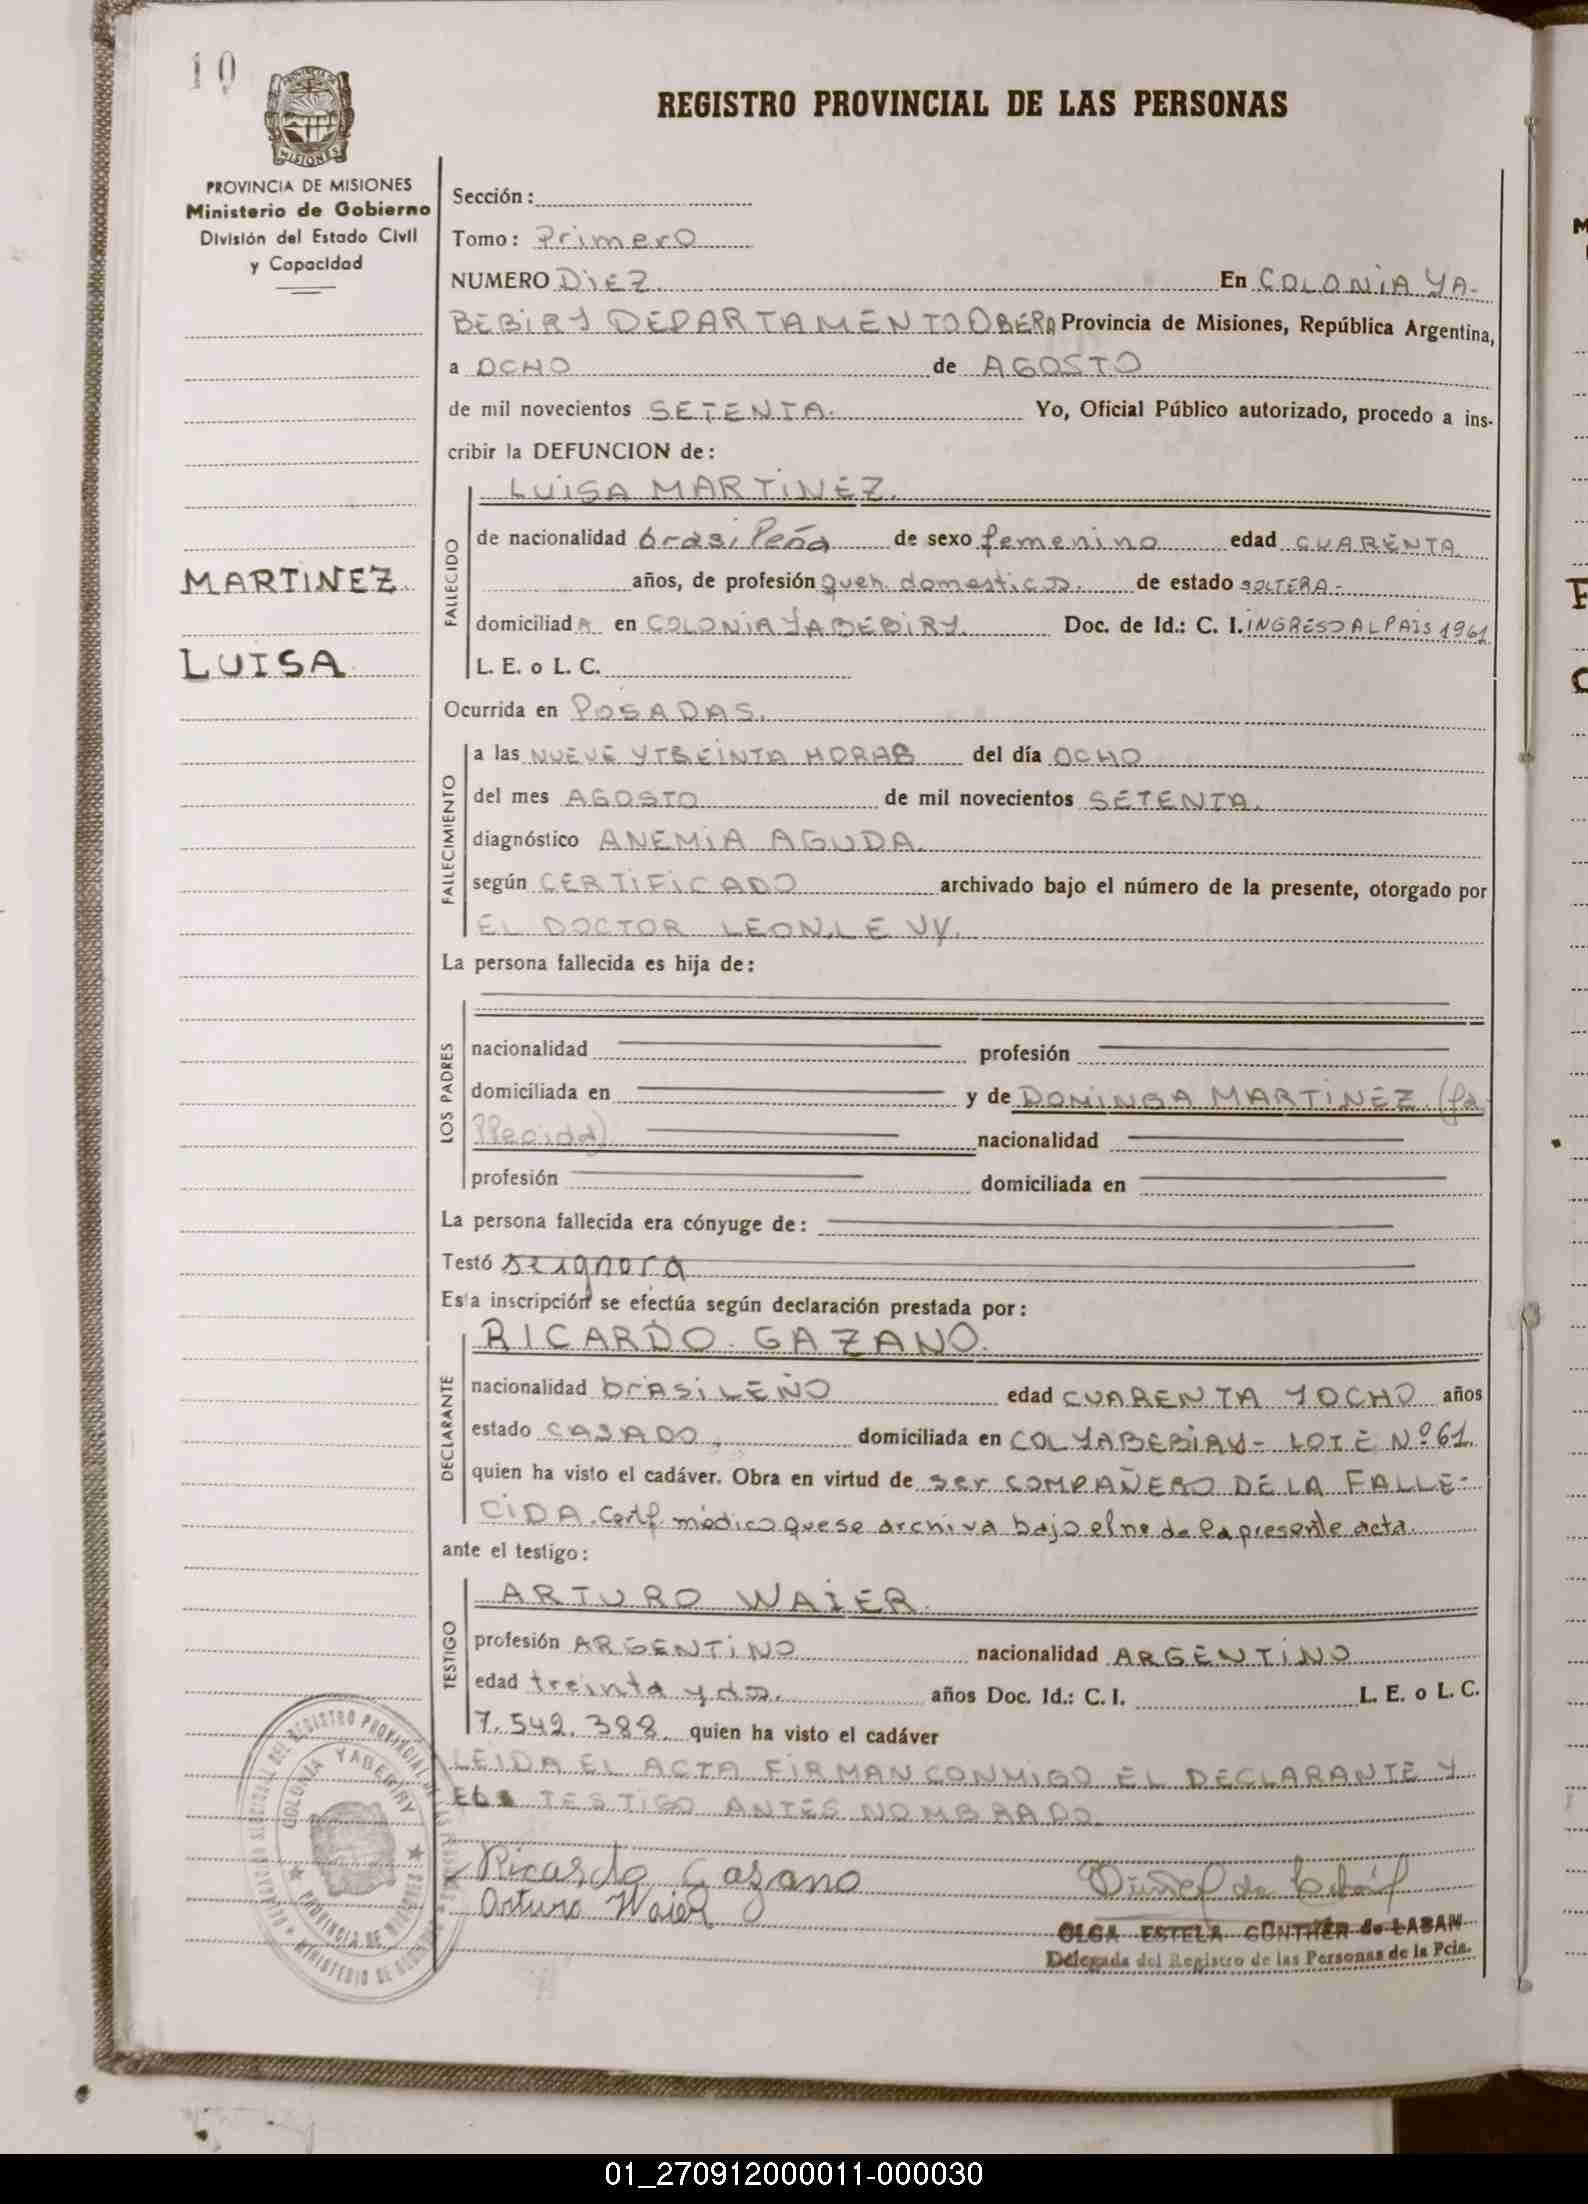 10
PROVINCIA DE MISIONES
Ministerio de Gobierno
División del Estado Civil
y Capacidad
MARTINEZ
LUISA
REGISTRO PROVINCIAL DE LAS PERSONAS
Sección:
Tomo: Primero
NUMERO DiEZ. En COLONiA YA-
BEBIRY DEPARTAMENTO OBERA Provincia de Misiones, República Argentina,
a OCHO de AGOSTO
de mil novecientos SETENTA. Yo, Oficial Público autorizado, procedo a ins-
cribir la DEFUNCION de:
LUiSA MARTiNEZ.
FALLECIDO
de nacionalidad brasileña de sexo femenino edad CUARENTA
años, de profesión queh. domesticos. de estado SOLTERA-
domiciliada en COLONiA YABEBiRY. Doc. de Id.: C. I. INGRESO AL PAIS 1961
L. E. o L. C.
Ocurrida en POSADAS.
FALLECIMIENTO
a las NUEVE Y TREiNTA HORAS del día OCHO
del mes AGOSTO de mil novecientos SETENTA.
diagnóstico ANEMiA AGUDA.
según CERTiFiCADO archivado bajo el número de la presente, otorgado por
EL DOCTOR LEON LEVY.
La persona fallecida es hija de:
LOS PADRES
nacionalidad profesión
domiciliada en y de DOMINGA MARTiNEZ (fa
llecida) nacionalidad
profesión domiciliada en
La persona fallecida era cónyuge de:
Testó se ignora
Esta inscripción se efectúa según declaración prestada por:
RICARDO GAZANO.
DECLARANTE
nacionalidad brASiLEÑO edad CUARENTA Y OCHO años
estado CASADO, domiciliada en COL YABEBIRY- LOTE Nº 61.
quien ha visto el cadáver. Obra en virtud de ser COMPAÑERO DE LA FALLE-
CiDA. Certf. médico que se archiva bajo el nº de la presente acta.
ante el testigo:
ARTURO WAiER.
TESTIGO
profesión ARGENTiNO nacionalidad ARGENTiNO
edad treinta y dos. años Doc. Id.: C. I. L. E. o L. C.
7.542.388. quien ha visto el cadáver
LEiDA EL ACTA FiRMAN CONMiGO EL DECLARANTE Y
EL TESTiGO ANTES NOMBRADO.
Ricardo Gazano
Arturo Waier
OLGA ESTELA GUNTHER de LABAN
Delegada del Registro de las Personas de la Pcia.
COLONIA YABEBIRY
PROVINCIA DE MISIONES
01_270912000011-000030